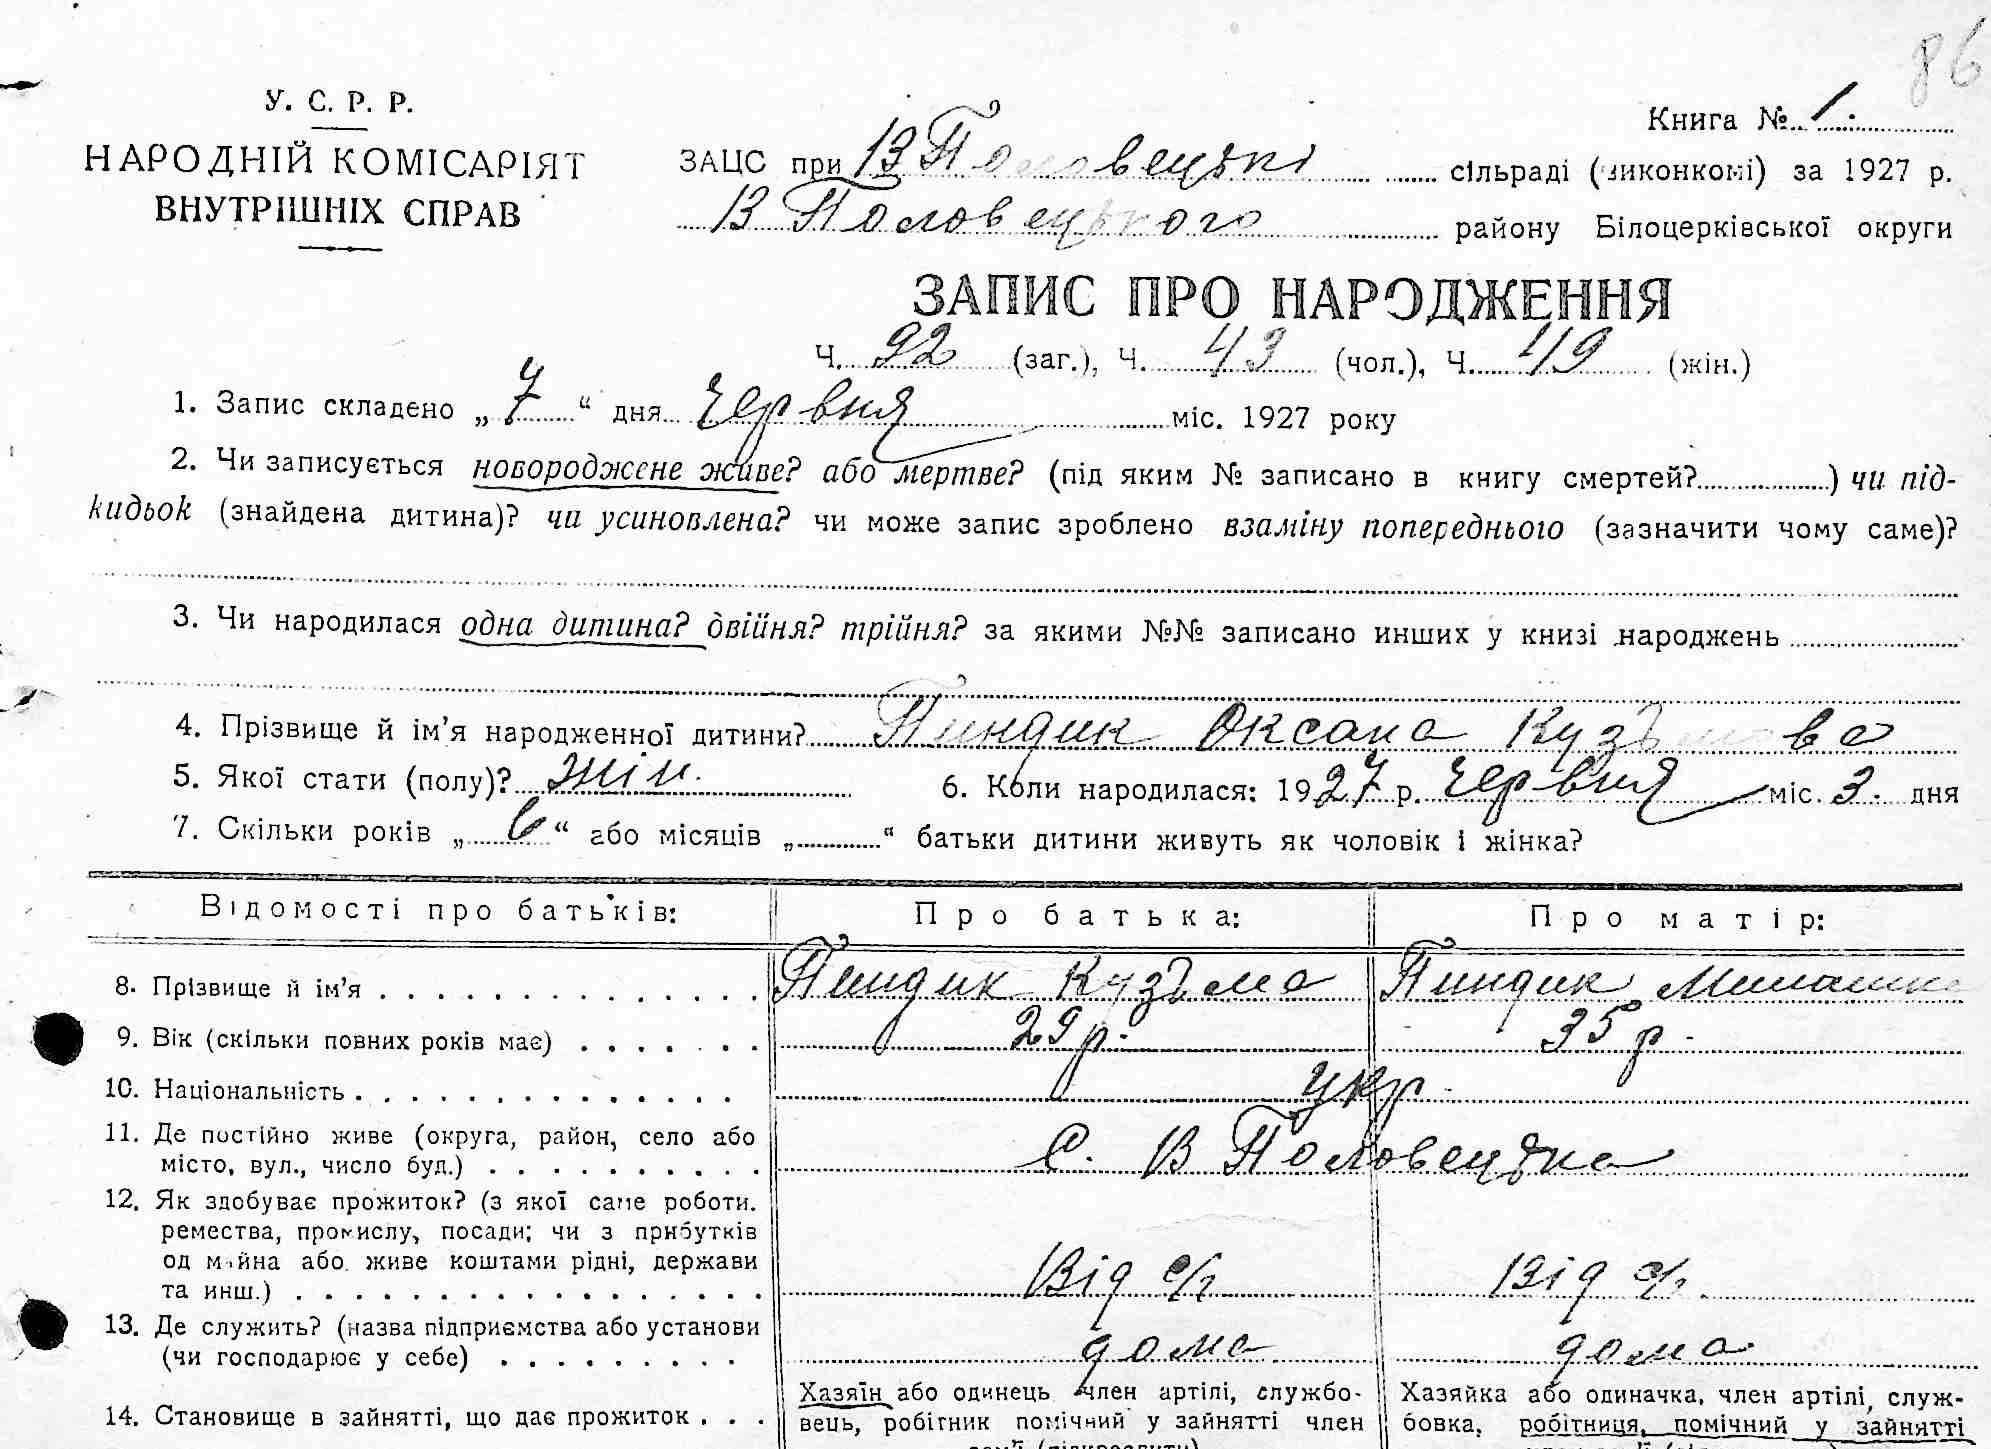 86
У. С. Р. Р.
НАРОДНІЙ КОМІСАРІЯТ
ВНУТРІШНІХ СПРАВ
Книга № 1.
ЗАЦС при В Половецькі сільраді (виконкомі) за 1927 р.
В Половецького району Білоцерківської округи
ЗАПИС ПРО НАРОДЖЕННЯ
Ч. 92 (заг.), Ч. 43 (чол.), Ч. 49 (жін.)
1. Запис складено „ 7 “ дня Червня міс. 1927 року
2. Чи записується новороджене живе? або мертве? (під яким № записано в книгу смертей?) чи під-
кидьок (знайдена дитина)? чи усиновлена? чи може запис зроблено взаміну попереднього (зазначити чому саме)?
3. Чи народилася одна дитина? двійня? трійня? за якими №№ записано инших у книзі народжень
4. Прізвище й ім’я народженної дитини? Пиндик Оксана Кузьмова
5. Якої стати (полу)? жін. 6. Коли народилася: 1927 р. Червня міс. 3. дня
7. Скільки років „ 6 “ або місяців „ “ батьки дитини живуть як чоловік і жінка?
Відомості про батьків: Про батька: Про матір:
8. Прізвище й ім’я Пиндик Кузьма Пиндик
9. Вік (скільки повних років має) 29 р. 35 р.
10. Національність укр.
11. Де постійно живе (округа, район, село або
місто, вул., число буд.) с. В Половецька
12. Як здобуває прожиток? (з якої саме роботи.
ремества, промислу, посади; чи з прибутків
од майна або живе коштами рідні, держави
та инш.) Від с/г Від с/г
13. Де служить? (назва підприємства або установи
(чи господарює у себе) дома дома
14. Становище в зайнятті, що дає прожиток Хазяїн або одинець член артілі, службо-
вець, робітник помічний у зайнятті член
Хазяйка або одиначка, член артілі, служ-
бовка, робітниця, помічний у зайнятті